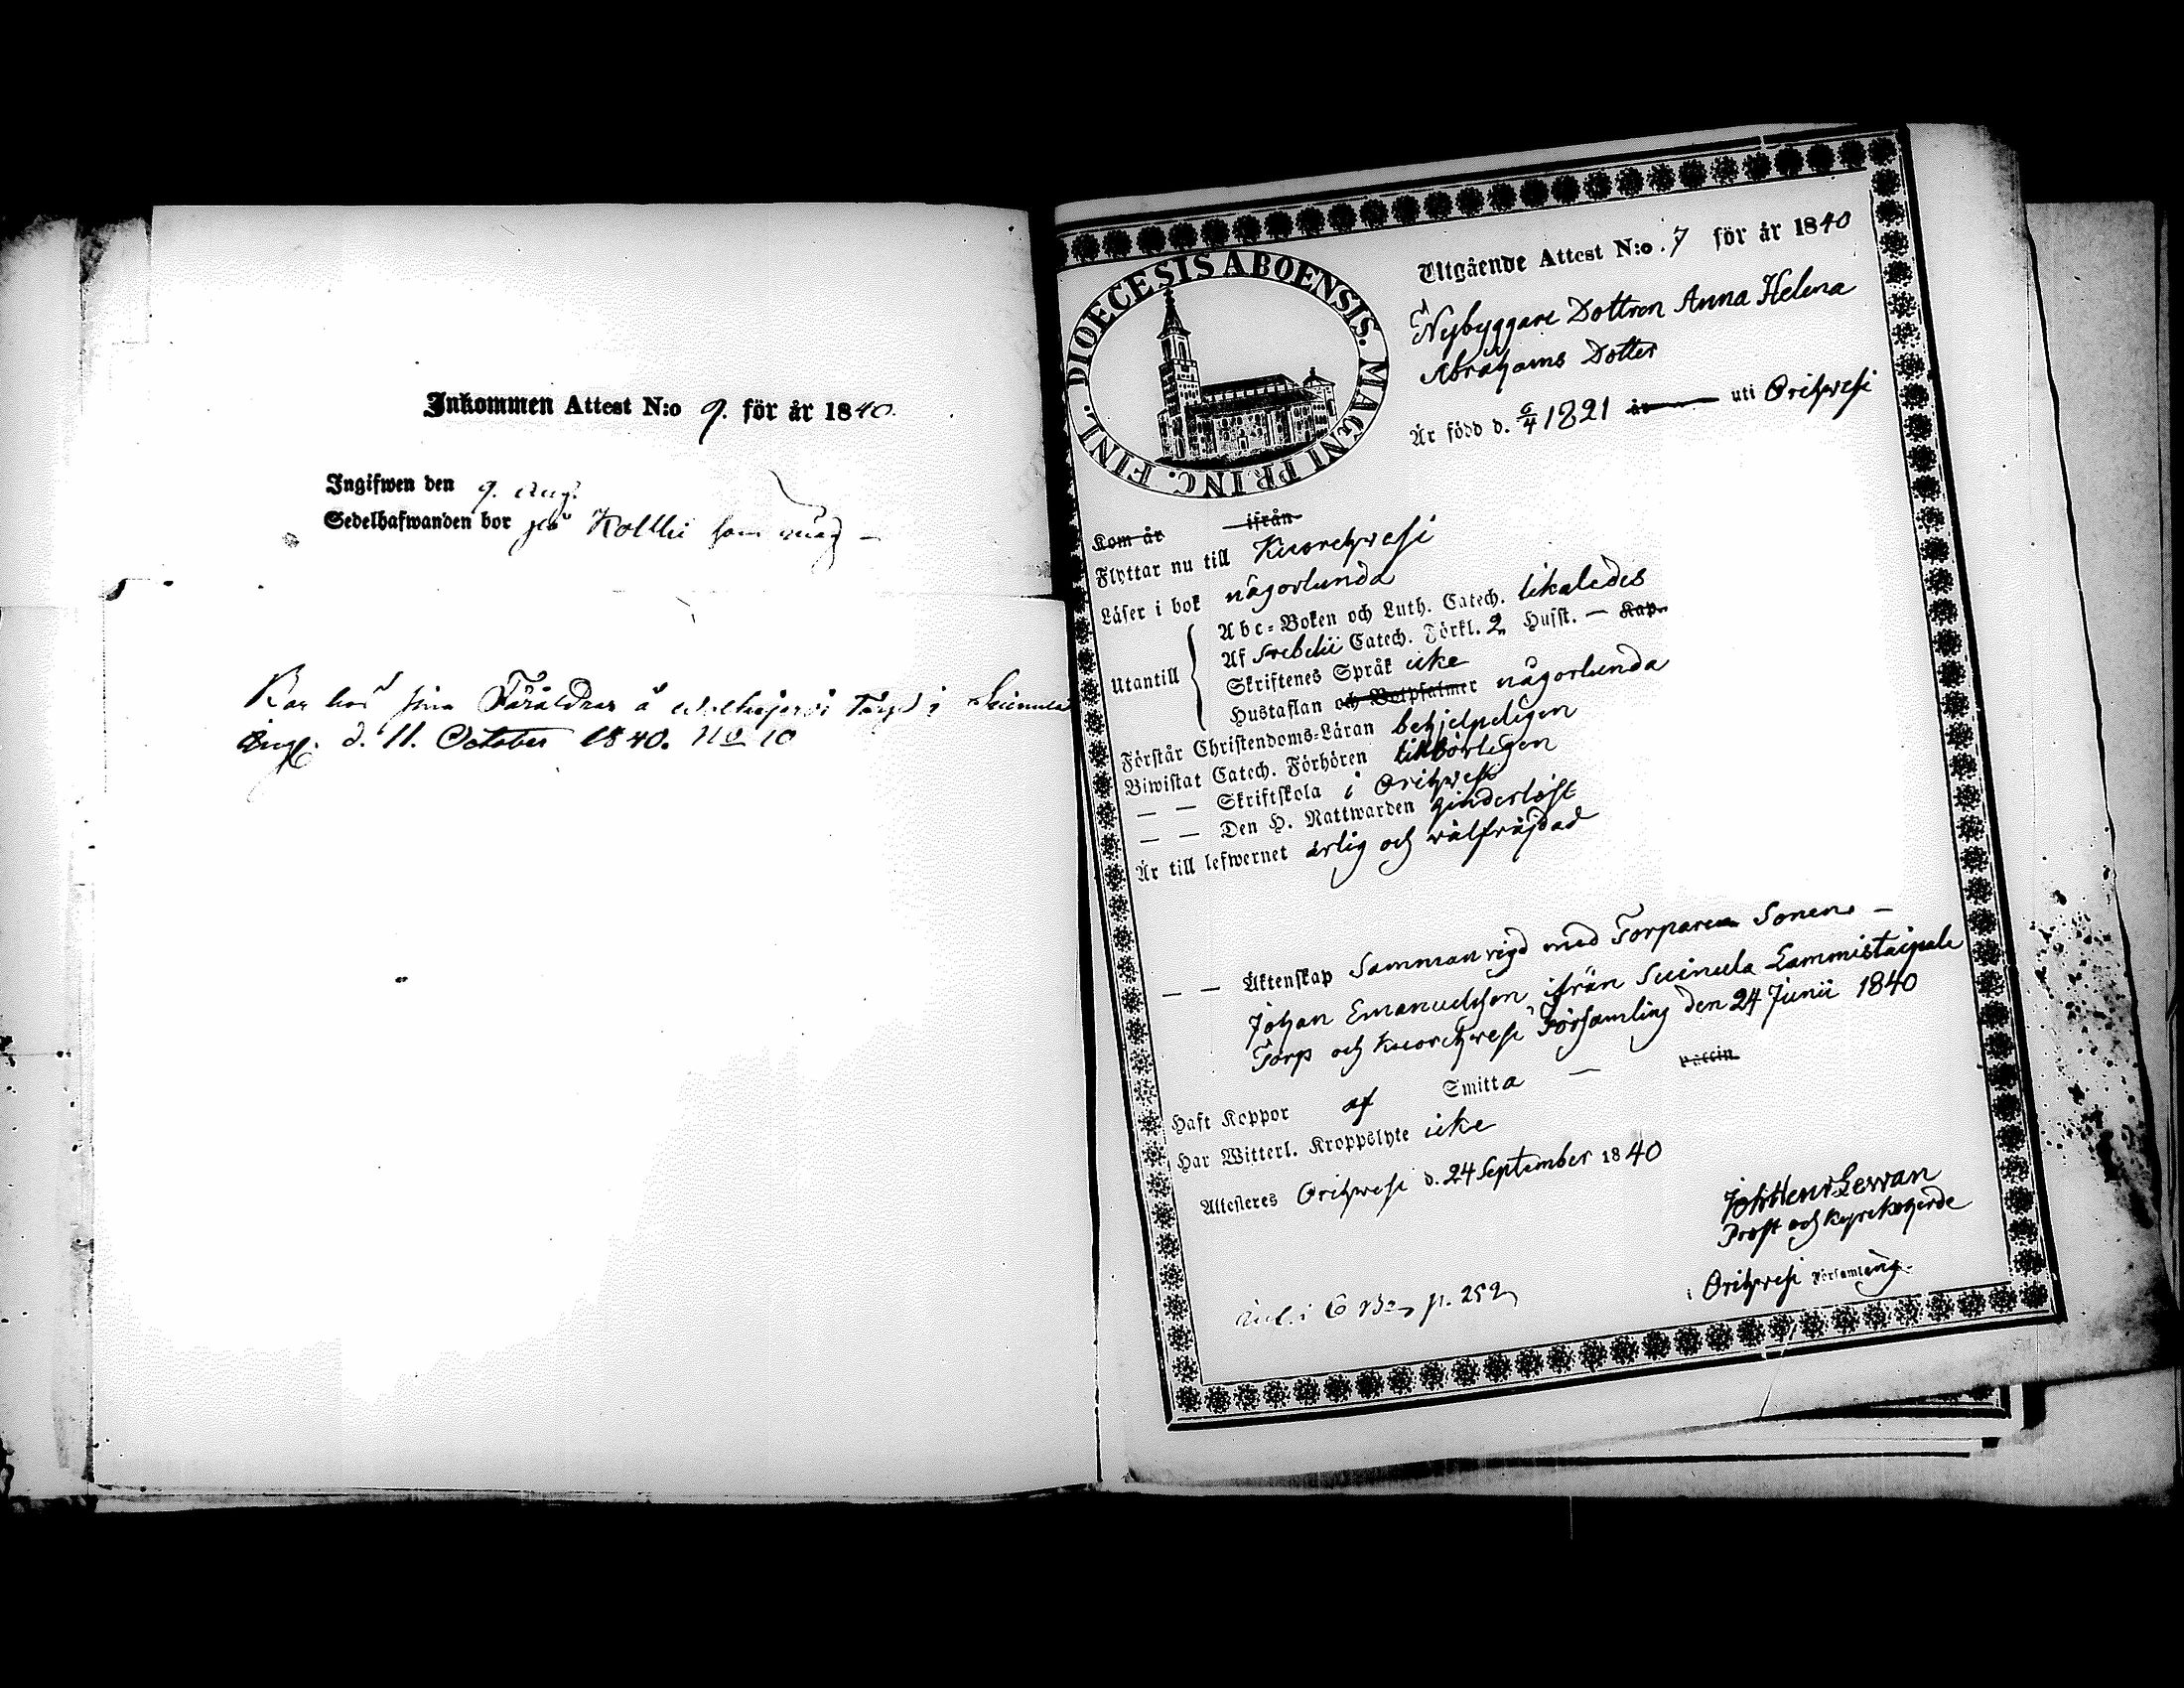 Inkommen Attest N:o 9. för år 1840.
Ingifwen den 9. Aug.
Sedelhafwanden bor på Kollki som måg –
hos sina Föräldrar å torp i Suinula
d. 11. October 1840. No 10
DIOECESIS ABOENSIS. MAGNI PRINC. FINL.
Utgående Attest N:o. 7 för år 1840
Nybyggare Dottren Anna Helena
Abrahams Dotter
Är född d. 6/4 1821 år uti Orihwesi
Kom år ifrån
Flyttar nu till Kuorehwesi
Läser i bok någorlunda
Utantill
Abc-Boken och Luth. Catech. likaledes
Af Svebelii Catech. Förkl. 2 Husst. – Kap.
Skriftenes Språk icke
Hustaflan och Botpsalmer någorlunda
Förstår Christendoms-Läran behjelpeligen
Biwistat Catech. Förhören tillbörligen
— — Skriftskola i Orihwesi
— — Den H. Nattwarden hinderlöst
Är till lefwernet ärlig och välfräjdad
— — Äktenskap Sammanvigd med Torpare Sonen –
Johan Emanuelsson ifrån Suinula Lammistaipale
Torp och Kuorehwesi Församling den 24 Junii 1840
Haft Koppor af Smitta — vaccin
Har Witterl. Kroppslyte icke
Attesteres Orihwesi d. 24 September 1840
Joh Henr Lewan
Prost och Kyrkoherde
i Orihwesi Församling.
p. 252